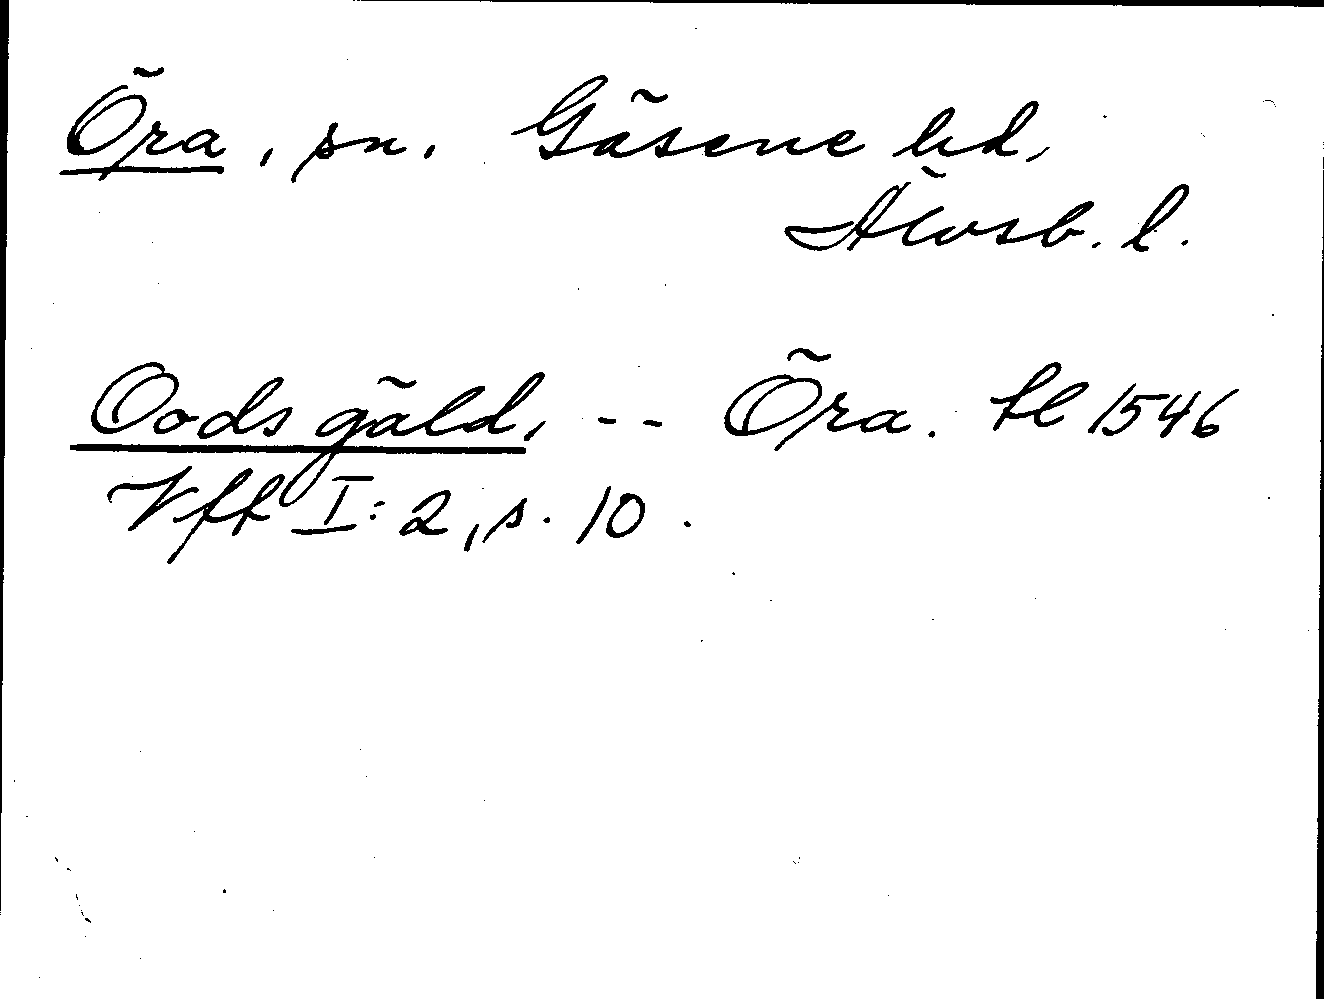 Öra, sn. Gäsene hd,
Älvsb. l.
Oods gäld, -- Öra. tl 1546
Vff I:2, s. 10.